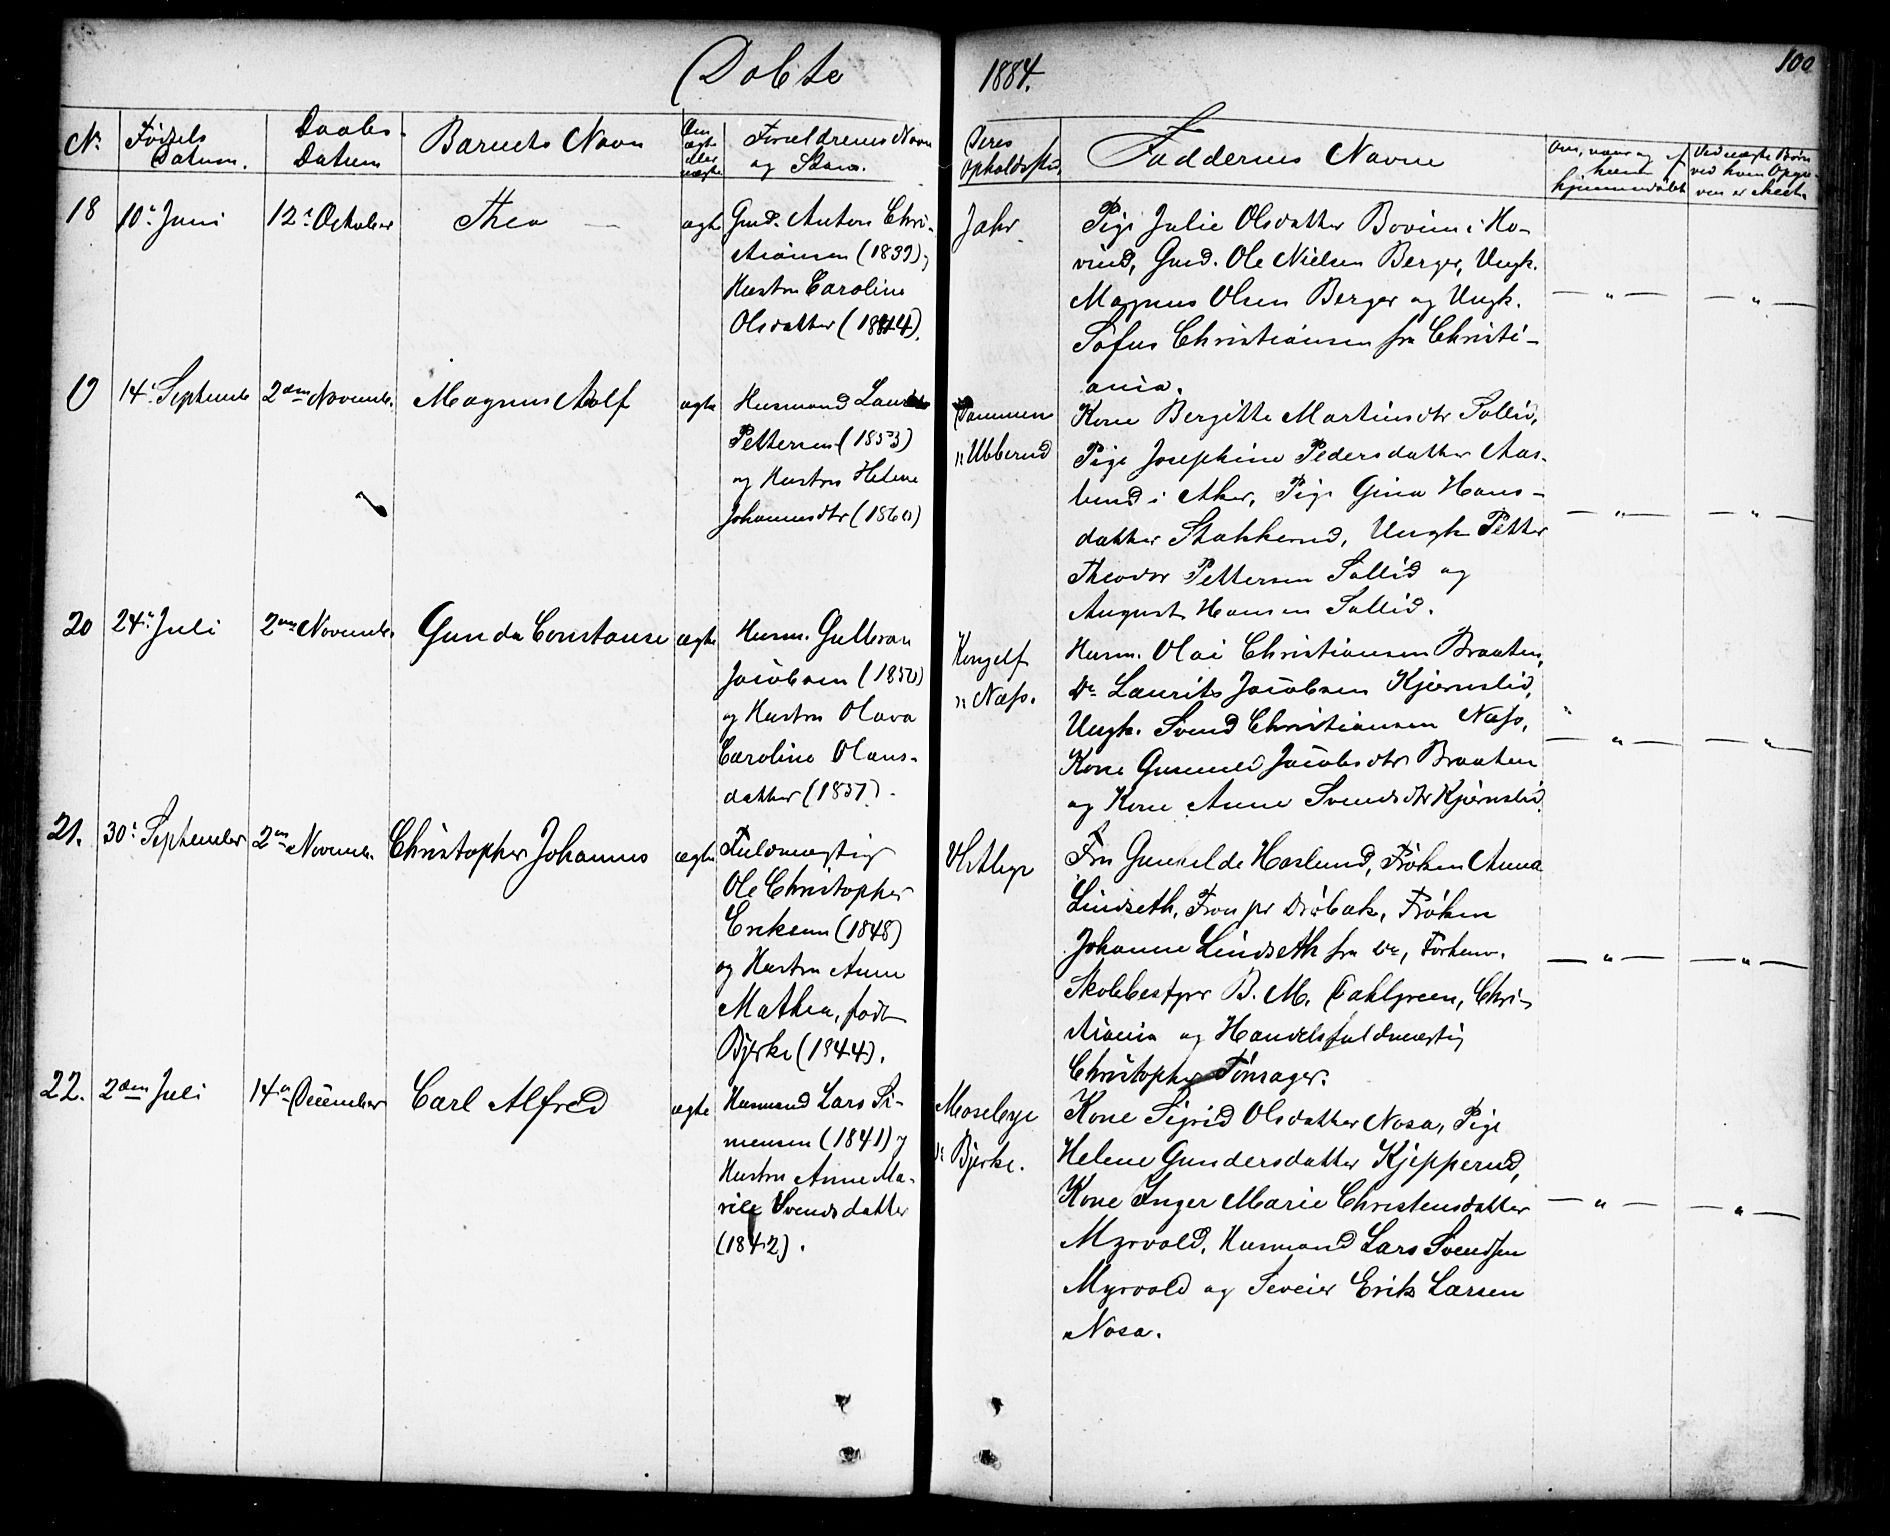 Døbte 1884. 100
N. Fødsels Datum. Daabs- Datum Barnets Navn Om ægte eller uægte Forældrenes Navn og Stand. Deres Opholdssted. Faddernes Navne
18 10de Juni 12te October Thea ægte Gmd. Anton Chri-
stiansen (1839) og
Hustru Caroline
Olsdatter (1844).
Jahr.
Pige Julie Olsdatter Bovim i Ho-
vind, Gmd. Ole Nielsen Berger, Ungk.
Magnus Olsen Berger og Ungk.
Sofus Christiansen fra Christi-
ania.
19 14de Septemb. 2den Novemb. Magnus Adolf ægte Husmand
Pettersen (1853)
og Hustru Helene
Johannesdtr (1860)
Dammen
u: Ubberud
Kone Bergitte Martinsdtr Sollid,
Pige Josephine Pedersdatter Aas-
lund i Aker, Pige Gina Hans-
datter Stakkerud, Ungk Petter
Theodor Pettersen Sollid og
August Hansen Sollid.
20 24de Juli 2den Novemb. Gunda Constanse ægte Husm. Gulbran
Jacobsen (1850)
og Hustru Olava
Caroline Olaus-
datter (1857).
Kongelf
u: Næss.
Husm. Olai Christiansen Braaten,
Do Laurits Jacobsen Kjernslid,
Ungk. Svend Christiansen Næss,
Kone Gunnild Jacobsdtr Braaten
og Kone Anne Svendsdtr Kjernslid.
21. 30te September 2den Novemb. Christopher Johannes ægte Fuldmægtig
Ole Christopher
Eriksen (1848)
og Hustru Anne
Mathea, født
Bjerke (1844).
Vestbye
Fru Gunhilde Haslund, Frøken Anna
Lindseth, Fron pr Drøbak, Frøken
Johanne Lindseth fra Do, Forhenv.
Skolebestyrer B. M. Dahlgreen, Chri-
stiania og Handelsfuldmægtig
Christopher Fonsager.
22. 2den Juli 14de December Carl Alfred ægte Husmand Lars Si-
mensen (1841) og
Hustru Anne Ma-
rie Svendsdatter
(1842).
Mosebye
u: Bjerke.
Kone Sigrid Olsdatter Nosa, Pige
Helene Gundersdatter Kjepperud,
Kone Inger Marie Christensdatter
Myrvold, Husmand Lars Svendsen
Myrvold og Seveier Erik Larsen
Nosa.